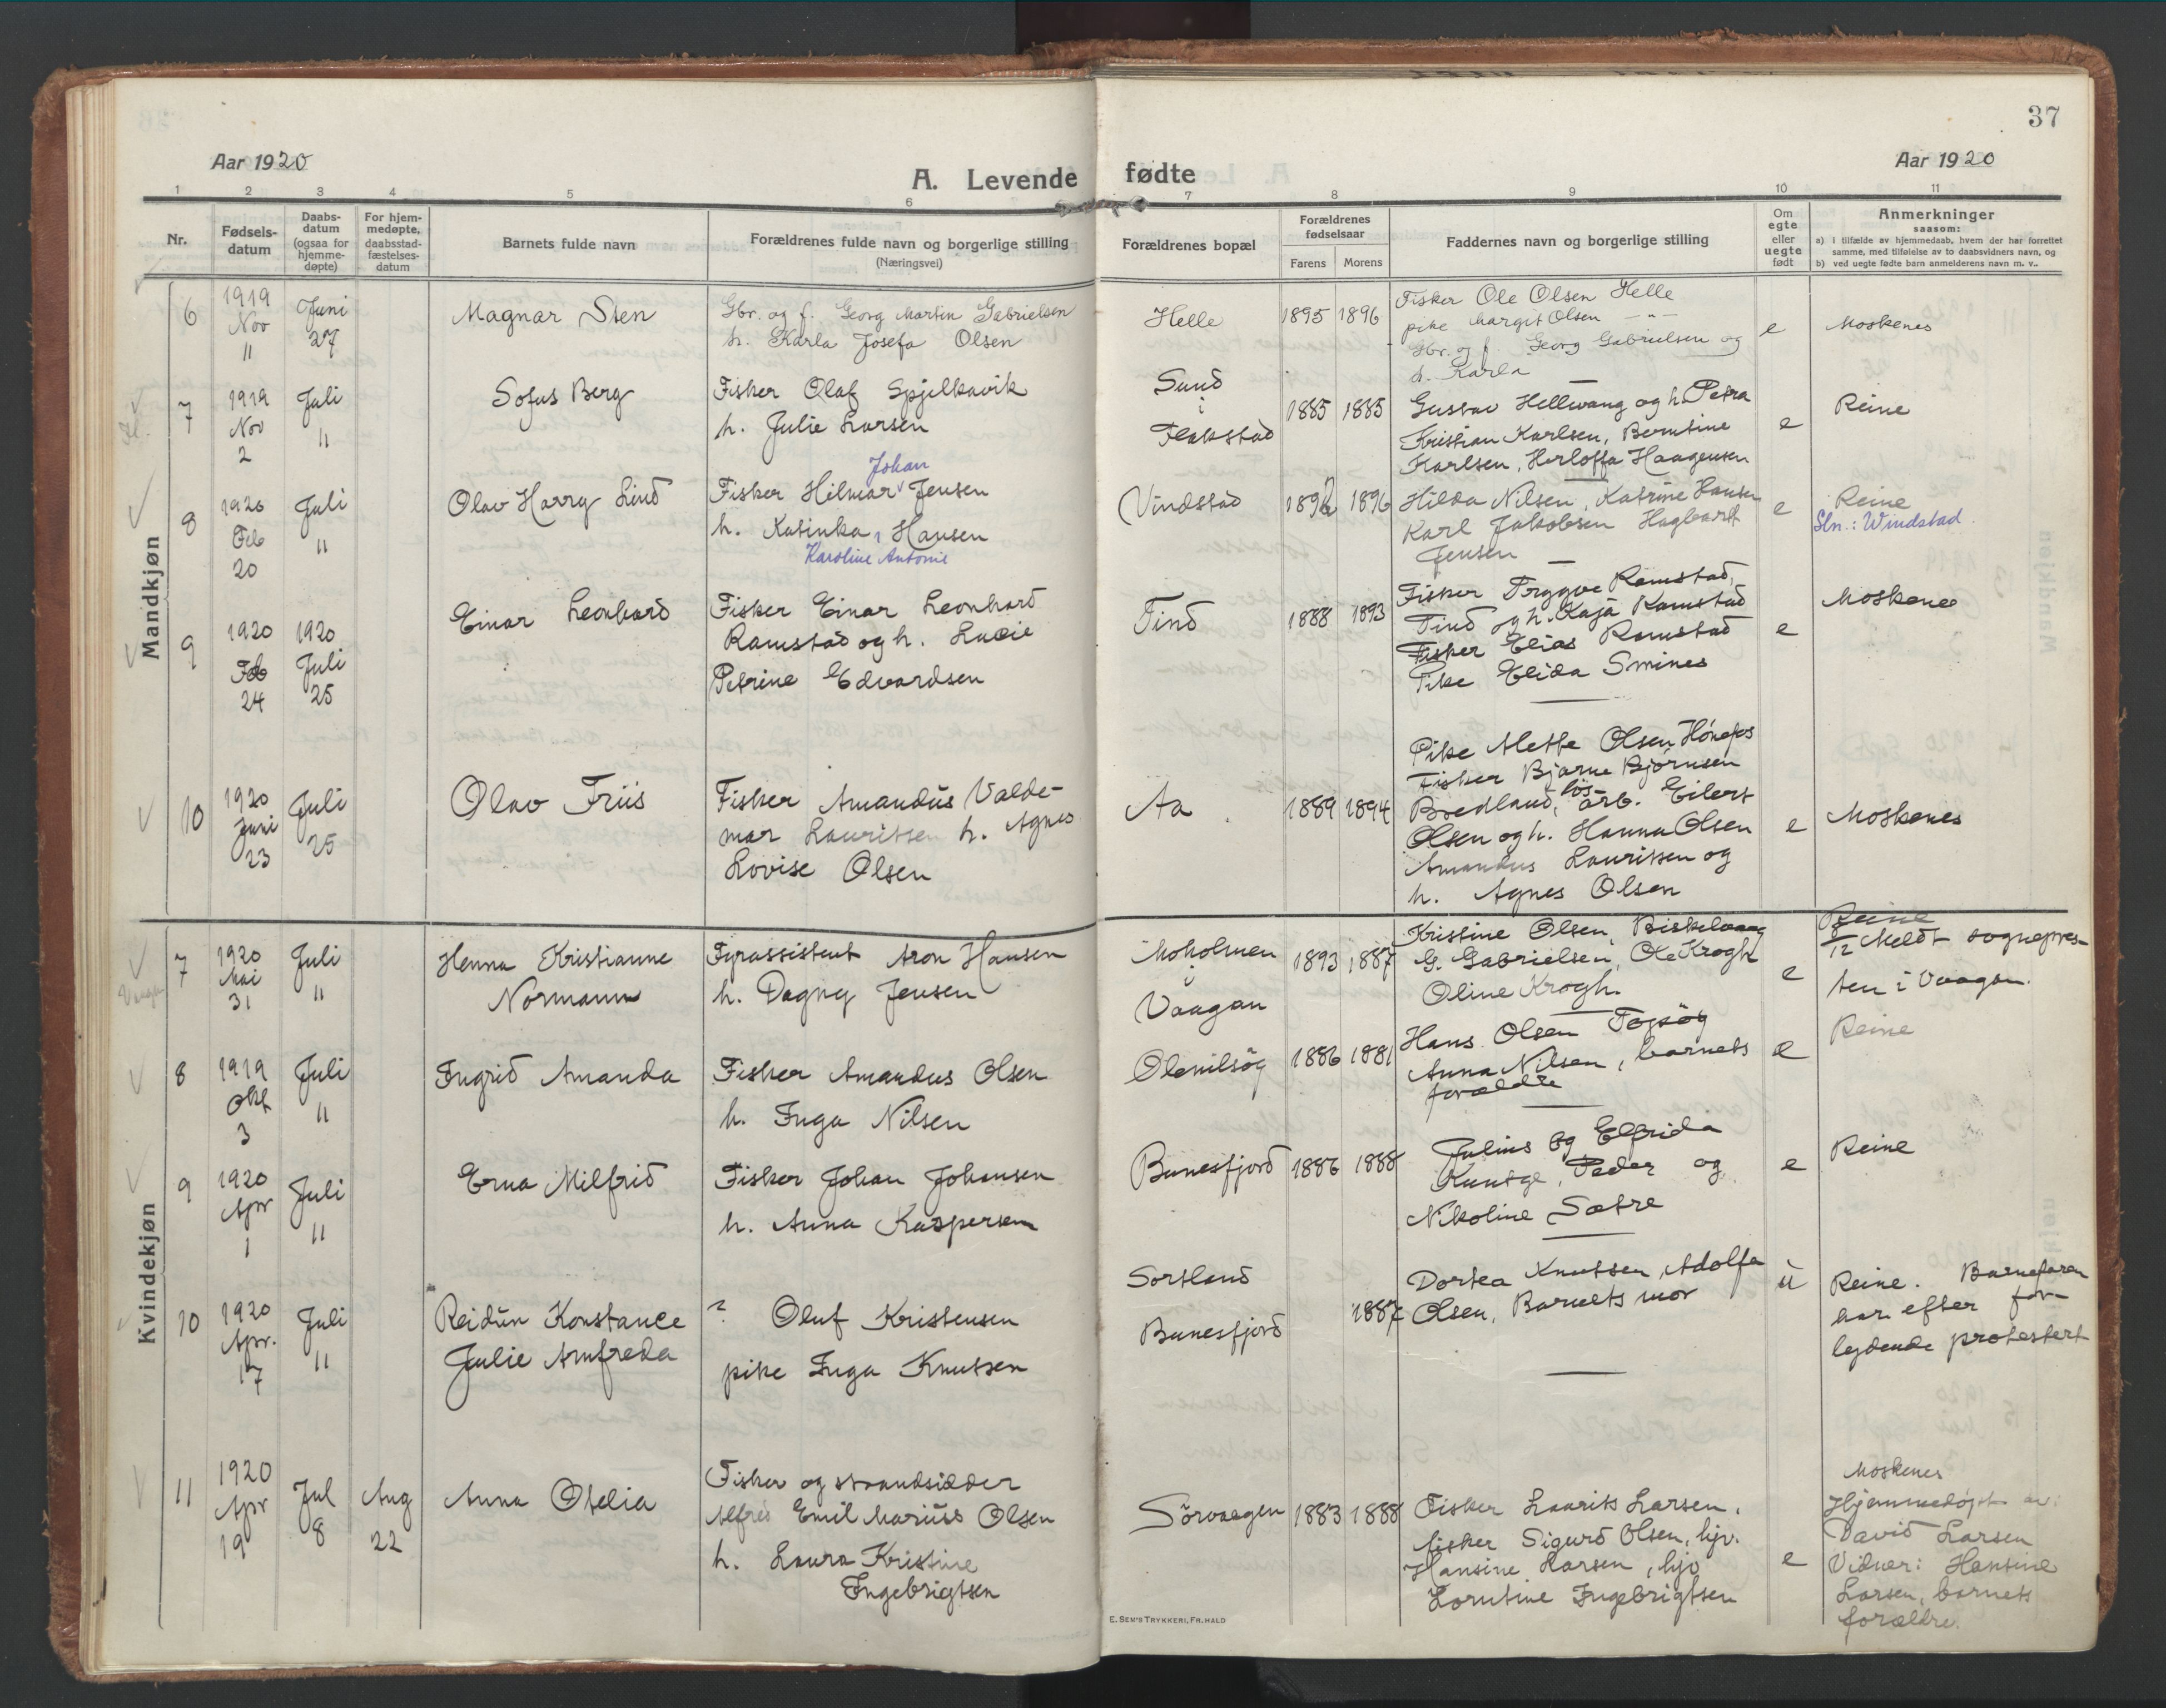 37
Aar 1920
A. Levende fødte
Aar 1920
1 2 3 4 5 6 7 8 9 10 11
Nr.
Fødsels-
datum
Daabs-
datum
(ogsaa for
hjemme-
døpte)
For hjem-
medøpte,
daabsstad-
fæstelses-
datum
Barnets fulde navn
Forældrenes fulde navn og borgerlige stilling
(Næringsvei)
Forældrenes bopæl
Forældrenes
fødselsaar
Farens Morens
Faddernes navn og borgerlige stilling
Om
egte
eller
uegte
født
Anmerkninger
saasom:
a) i tilfælde av hjemmedaab, hvem der har forrettet
samme, med tilføielse av to daabsvidners navn, og
b) ved uegte fødte barn anmelderens navn m. v..
Mandkjøn
6
1919
Nov
11
Juni
27
Magnar Sten
Gbr. og f. Georg Martin Gabrielsen
h. Karla Josefa Olsen
Helle
1895 1896
Fisker Ole Olsen Helle
pike Margit Olsen — " —
Gbr. og f. Georg Gabrielsen og
h. Karla
e
Moskenes
7
1919
Nov
2
Juli
11
Sofus Berg
Fisker Olaf Spjelkavik
h. Julie Larsen
Sund
i
Flakstad
1885 1885
Gustav Hellwang og h. Petra
Kristian Karlsen, Berntine
Karlsen, Herloffa Haagensen
e
Reine
8
1920
Feb
20
Juli
11
Olav Harry Lind
Johan
Fisker Hilmar Jensen
h. Katinka Hansen
Karoline Antonie
Vindstad
1892 1896
Hilda Nilsen, Katrine Hansen
Karl Jakobsen Hagbart
Jensen
e
Reine
Sln.: Windstad.
9
1920
Feb
24
1920
Juli
25
Einar Leonhard
Fisker Einar Leonhard
Ramstad og h. Lucie
Petrine Edvardsen
Tind
1888 1893
Fisker Trygve Ramstad,
Tind og h. Kaja Ramstad
Fisker Elias Ramstad
Pike Elida Smines
e
Moskenes
10
1920
Juni
23
Juli
25
Olav Friis
Fisker Amandus Valde-
mar Lauritsen h. Agnes
Lovise Olsen
Aa
1889 1894
Pike Alette Olsen Hønefos
Fisker Bjarne Bjørnsen
Bredland, løs-arb. Eilert
Olsen og h. Hanna Olsen
Amandus Lauritsen og
h. Agnes Olsen
e
Moskenes
Kvindekjøn
7
1920
Mai
31
Juli
11
Henna Kristianne
Normann
Fyrassistent Aron Hansen
h. Dagny Jensen
Moholmen
i
Vaagan
1893 1887
Kristine Olsen,
G. Gabrielsen, Ole Krogh
Oline Krogh.
e
Reine
Meldt sognepres-
ten i Vaagan.
8
1919
Okt
3
Juli
11
Ingrid Amanda
Fisker Amandus Olsen
h. Inga Nilsen
Olenilsøy
1886 1881
Hans Olsen Topsøy
Anna Nilsen, barnets
forældre
e
Reine
9
1920
Apr
1
Juli
11
Erna Milfrid
Fisker Johan Johansen
h. Anna Kaspersen
Bunesfjord
1886 1888
Julius og Elfrida
Kuntge, Peder og
Nikoline Sætre
e
Reine
10
1920
Apr.
17
Juli
11
Reidun Konstance
Julie Arnfreda
? Oluf Kristensen
pike Inga Knutsen
Sortland
Bunesfjord
1887
Dortea Knutsen, Adolfa
Olsen, Barnets mor
u
Reine. Barnefaren
har efter for-
lydende protestert
11
1920
Apr
19
Jul
8
Aug
22
Anna Otelia
Fisker og strandsidder
Alfred Emil Marius Olsen
h. Laura Kristine
Ingebrigtsen
Sørvaagen
1883 1888
Fisker Laurits Larsen,
fisker Sigurd Olsen, hjv.
Hansine Larsen, hjv
Lorntine Ingebrigtsen
e
Moskenes
Hjemmedøpt av:
David Larsen
Vidner: Hansine
Larsen, barnets
forældre.
E. SEM'S TRYKKERI, FR.HALD